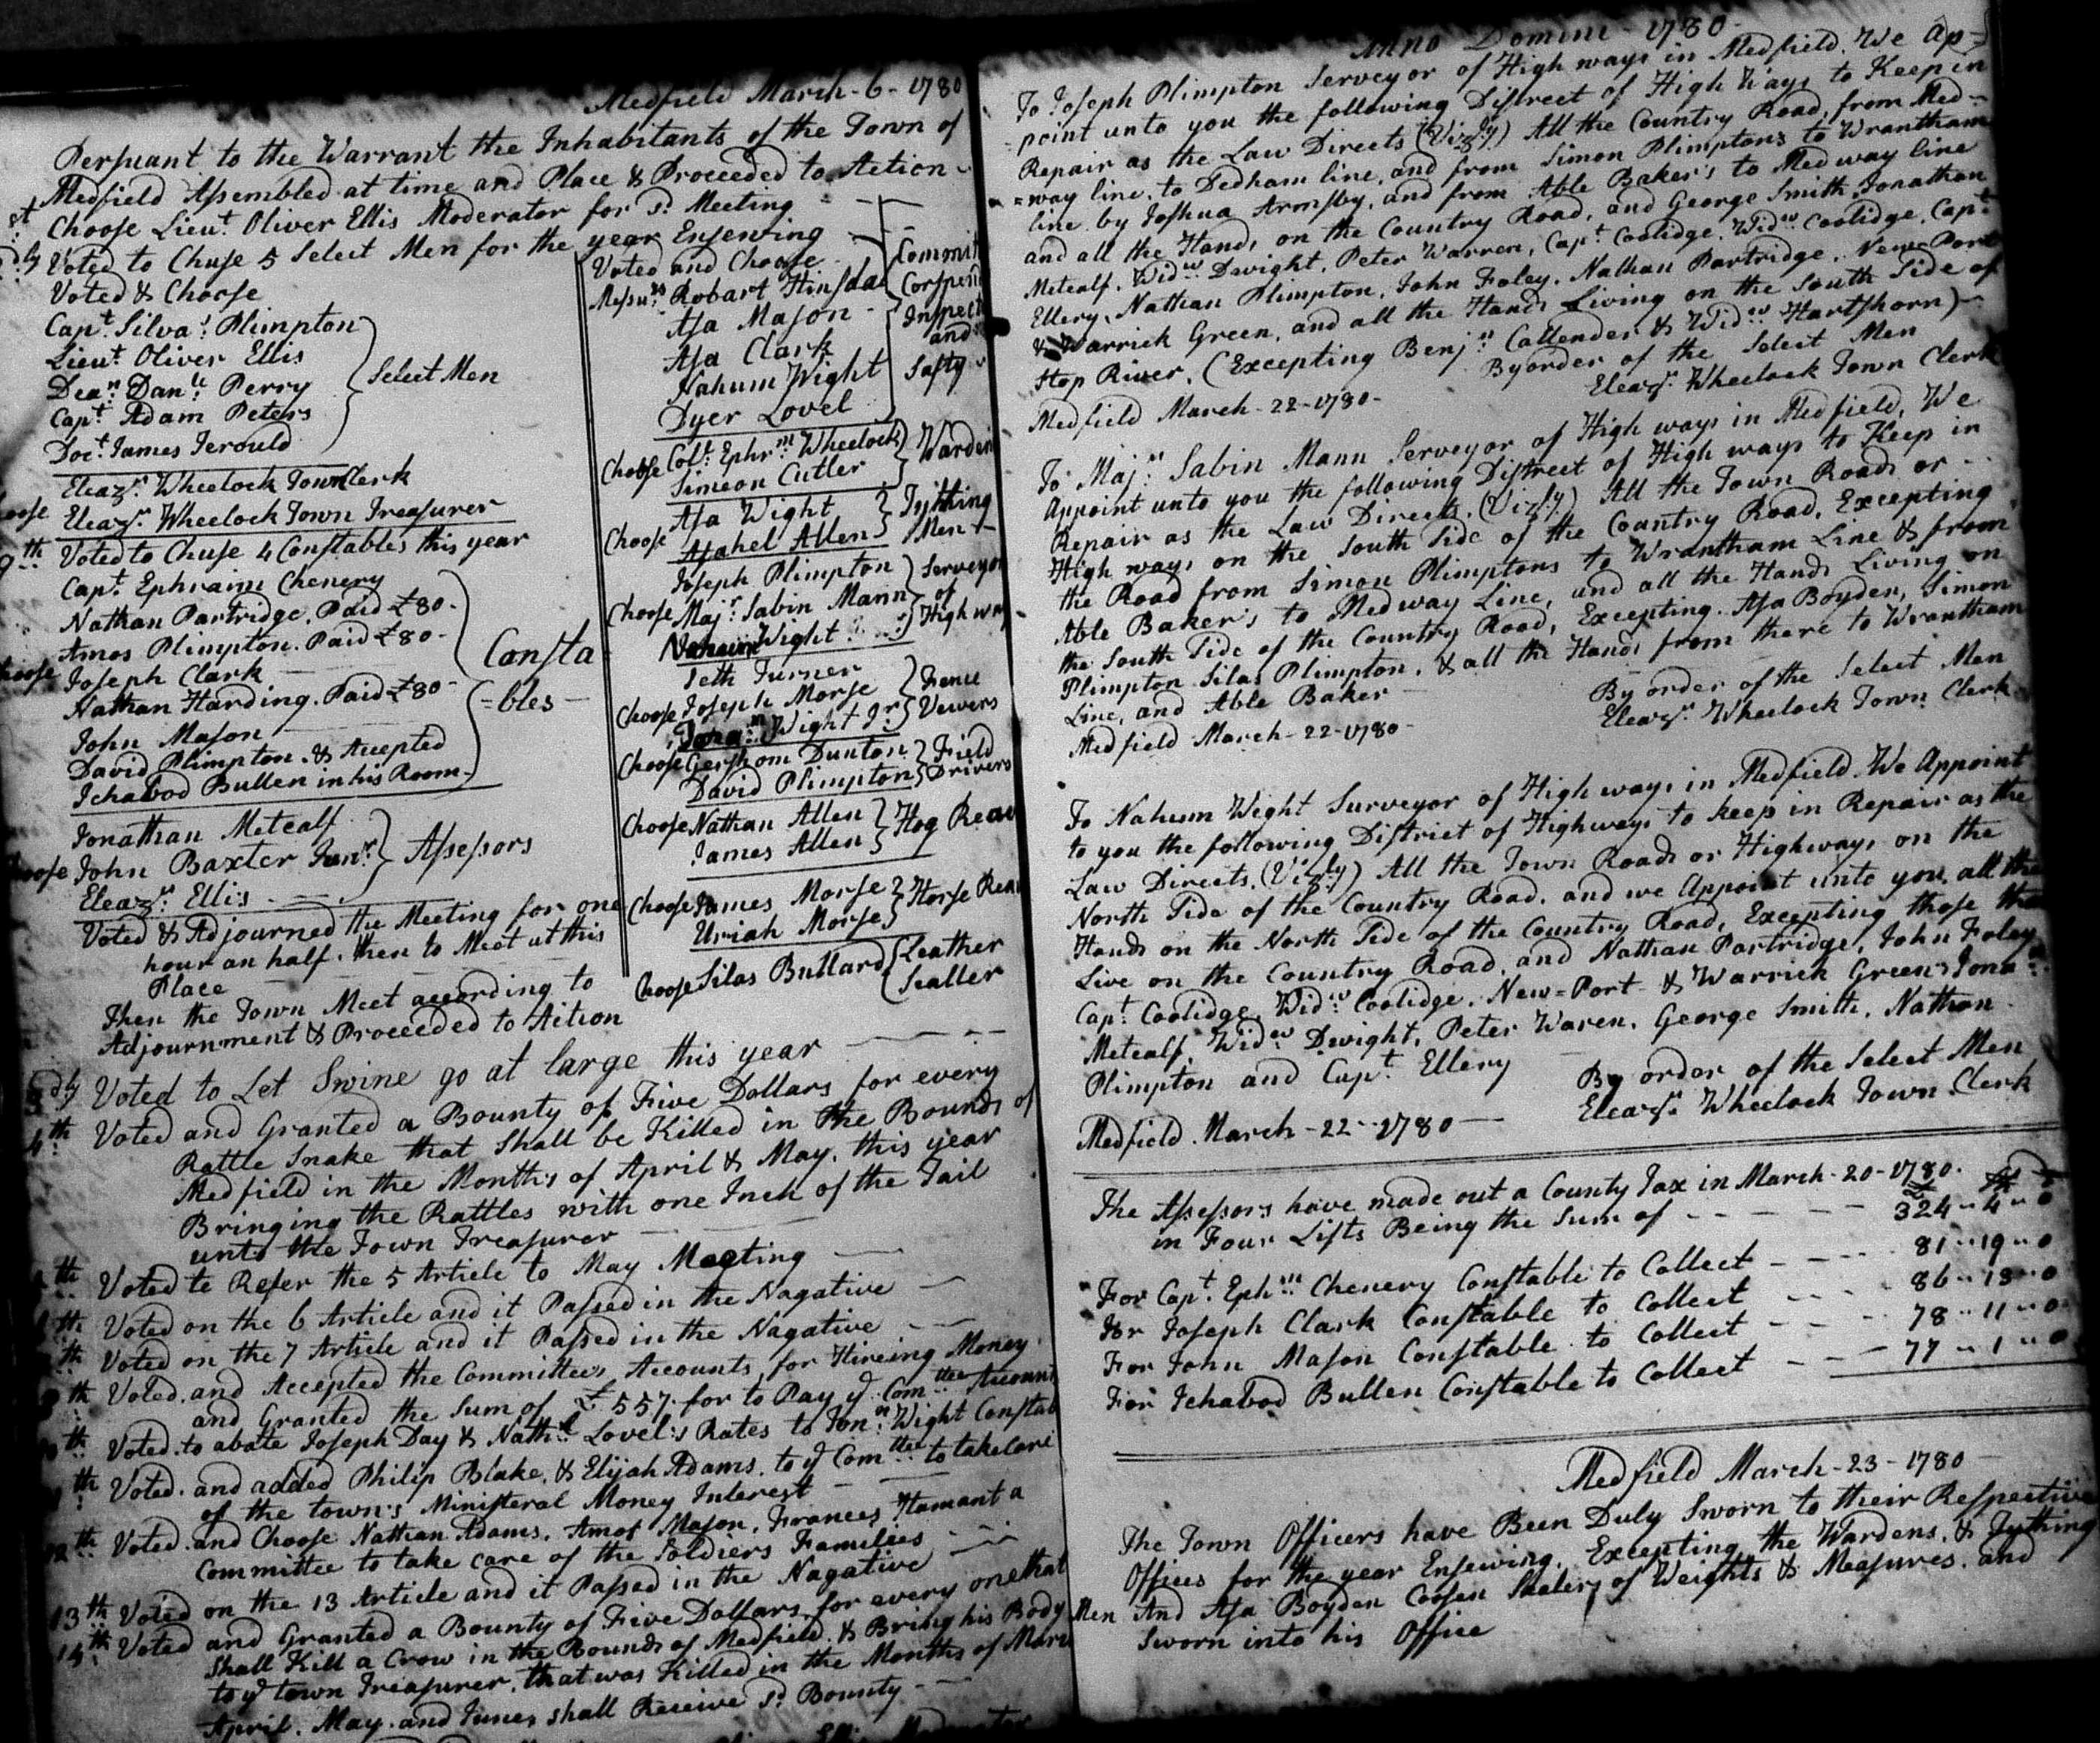 Medfield March - 6 - 1780
Persuant to the Warrant the Inhabitants of the Town of
Medfield Assembled at time and Place & Proceeded to Action
Choose Lieut. Oliver Ellis Moderator for sd. Meeting
Voted to Chuse 5 Select Men for the year Ensewing
Voted & Choose
Capt. Silvas. Plimpton
Lieut. Oliver Ellis
Dean. Danll. Perry
Capt. Adam Peters
Doct. James Jerould
Select Men
Eleazr. Wheelock Town Clerk
Eleazr. Wheelock Town Treasurer
Voted to Chuse 4 Constables this year
Capt. Ephraim Chenery
Nathan Partridge. Paid £80 -
Amos Plimpton. Paid £80 -
Joseph Clark
Nathan Harding. Paid £80 -
John Mason
David Plimpton. & Accepted
Ichabod Bullen in his Room
Consta
= bles -
Jonathan Metcalf
John Baxter Junr.
Eleazr. Ellis
Assessors
Voted & Adjourned the Meeting for one
hour an half. then to Meet at this
Place
Then the Town Meet according to
Adjournment & Proceeded to Action
Voted and Choose
Messurs. Robart Hinsdal
Asa Mason
Asa Clark
Nahum Wight
Dyer Lovel
Commit
Corspend
Inspect
and
Safty
Choose Colt. Ephrm. Wheelock
Simeon Cutler
Warden
Choose Asa Wight
Asahel Allen
Tything
Men
Joseph Plimpton
Choose Majr. Sabin Mann
Nahum Wight
Surveyor
of
High way
Seth Turner
Choose Joseph Morse
Jonan. Wight Jr
Fence
Vewers
Choose Gershom Dunton
David Plimpton
Field
Drivers
Choose Nathan Allen
James Allen
Hog Reav
Choose James Morse
Uriah Morse
Horse Reav
Choose Silas Bullard
Leather
Sealler
3dly Voted to Let Swine go at large this year
4th Voted and Granted a Bounty of Five Dollars for every
Rattle Snake that Shall be Killed in the Bounds of
Medfield in the Months of April & May. this year
Bringing the Rattles with one Inch of the Tail
unto the Town Treasurer
Voted to Refer the 5 Article to May Meeting
Voted on the 6 Article and it Passed in the Nagative
Voted on the 7 Article and it Passed in the Nagative
Voted. and Accepted the Committees Accounts for Hireing Money
and Granted the Sum of £557. for to Pay ye. Comttee Account
Voted. to abate Joseph Day & Nathll Lovel's Rates to Jonn. Wight Constab
Voted. and added Philip Blake. & Elijah Adams. to ye Comttee to take Care
of the town's Ministeral Money Interest
12th Voted. and Choose Nathan Adams. Amos Mason. Frances Hamant a
Committee to take care of the Soldiers Families
13th Voted on the 13 Article and it Passed in the Nagative
14th Voted and Granted a Bounty of Five Dollars for every one that
Shall Kill a Crow in the Bounds of Medfield. & Bring his Body
to ye town Treasurer. that was Killed in the Months of Marc
April. May. and June, shall Receive sd. Bounty
Anno Domini - 1780 -
To Joseph Plimpton Serveyor of High ways in Medfield. We Ap=
=point unto you the following Distreect of High Ways to Keep in
Repair as the Law Directs (Vizly) All the Country Road, from Med-
=way line. to Dedham line, and from Simon Plimptons to Wrantham
line by Joshua Armsby, and from Able Baker's to Medway line
and all the Hands on the Country Road, and George Smith. Jonathan
Metcalf. Widw Dwight. Peter Warren, Capt. Coolidge. Widw Coolidge. Capt.
Ellery. Nathan Plimpton, John Foley. Nathan Partridge. New-Port
& Warrick Green, and all the Hands Living on the South Side of
Stop River. (Excepting Benjn. Callender & Widw Hartshorn)
By order of the Select Men
Eleazr. Wheelock Town Clerk
Medfield March - 22 - 1780 -
To Majr. Sabin Mann Serveyor of High ways in Medfield, We
Appoint unto you the following Distreect of High ways to Keep in
Repair as the Law Directs. (Vizly) All the Town Roads or
High ways on the South Side of the Country Road, Excepting
the Road from Simon Plimptons to Wrantham Line & from
Able Baker's to Medway Line, and all the Hands Living on
the South Side of the Country Road, Excepting. Asa Boyden, Simon
Plimpton. Silas Plimpton. & all the Hands from there to Wrantham
Line, and Able Baker
By order of the Select Men
Eleazr. Wheelock Town Clerk
Medfield March - 22 - 1780 -
To Nahum Wight Surveyor of High ways in Medfield. We Appoint
to you the following District of Highways to keep in Repair as the
Law Directs. (Vizly) All the Town Roads or Highways on the
North Side of the Country Road. and we Appoint unto you all the
Hands on the North Side of the Country Road, Excepting those that
Live on the Country Road, and Nathan Partridge, John Foley
Capt. Coolidge, Widw Coolidge. New=Port & Warrick Green, Jonan
Metcalf, Widw Dwight, Peter Waren. George Smith. Nathan
Plimpton and Capt. Ellery
By order of the Select Men
Eleazr. Wheelock Town Clerk
Medfield. March - 22 - 1780
The Assessors have made out a County Tax in March - 20 - 1780.
in Four Lists Being the Sum of 324 " 4 " 0
For Capt. Ephm Chenery Constable to Collect 81 " 19 " 0
For Joseph Clark Constable to Collect 86 " 13 " 0
For John Mason Constable to Collect 78 " 11 " 0
For Ichabod Bullen Constable to Collect 77 " 1 " 0
Medfield March - 23 - 1780
The Town Officers have Been Duly Sworn to their Respective
Offices for the year Ensewing. Excepting the Wardens. & Tything
Men And Asa Boyden Coosen Sealer of Weights & Measures. and
Sworn into his Office